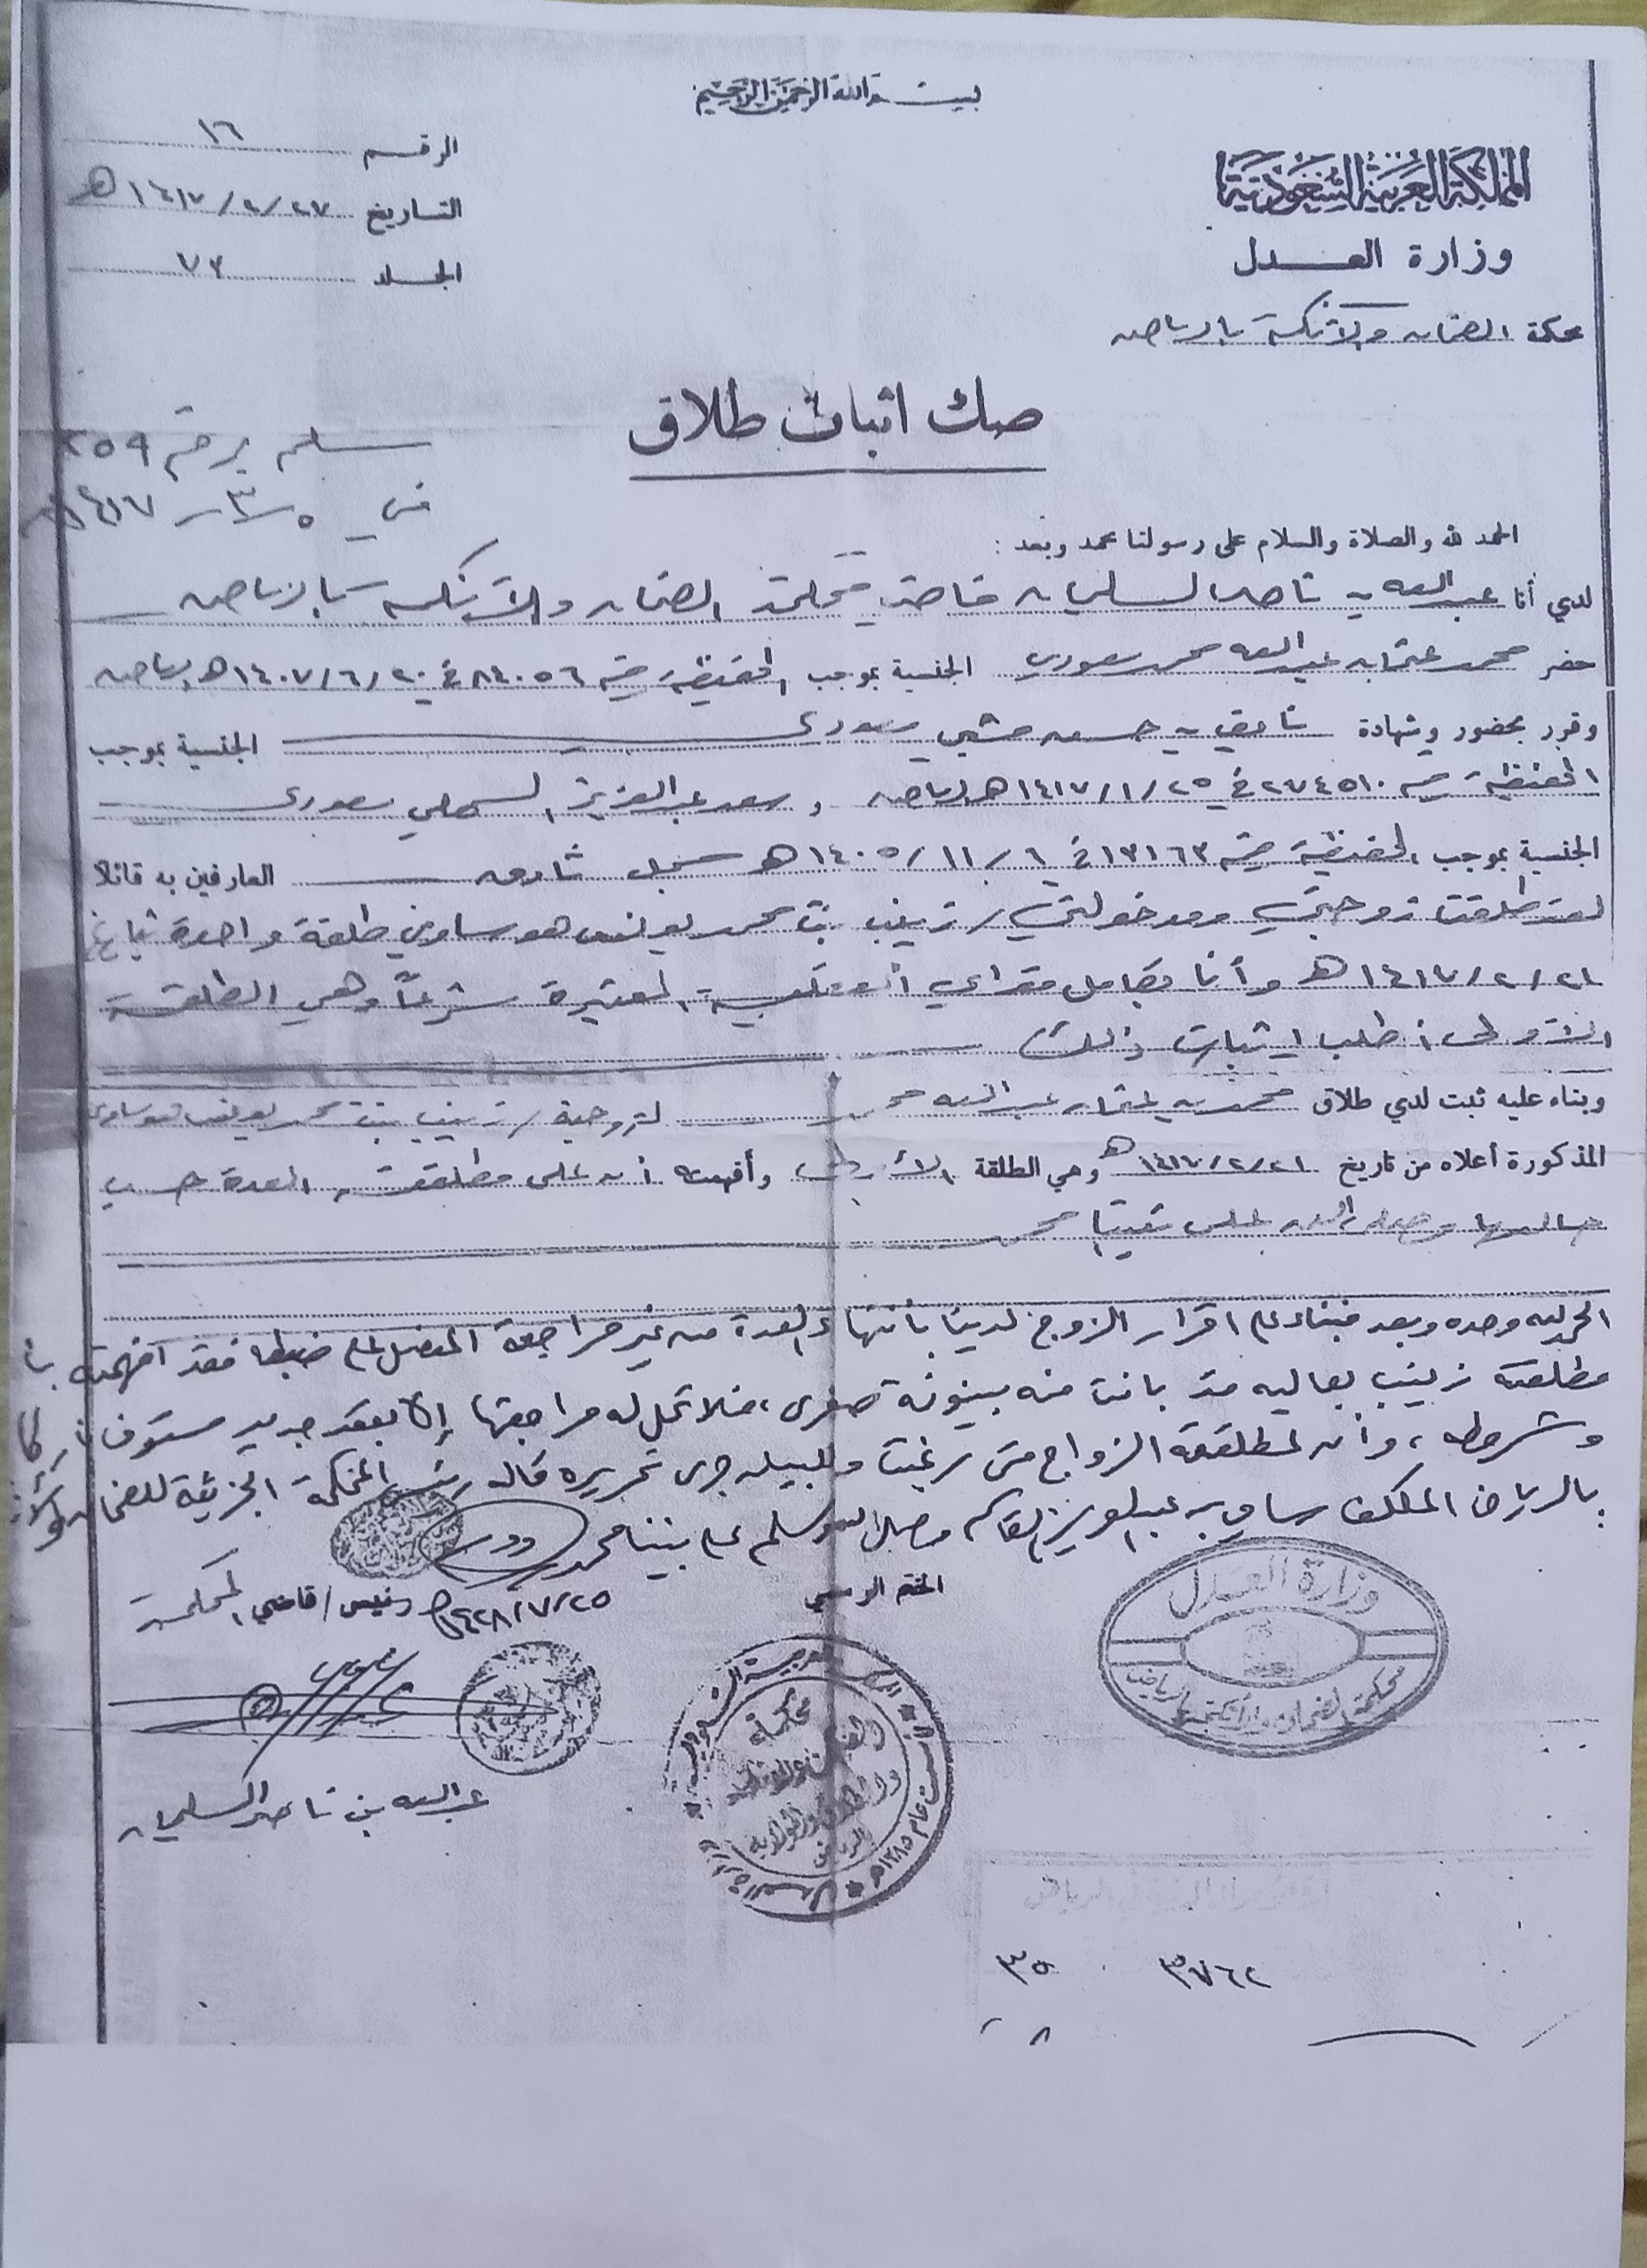 بسم الله الرحمن الرحيم
المملكة العربية السعودية
وزارة العدل
محكمة الضمان والأنكحة بالرياض
الرقم ١٦
التاريخ ٢٧/٢/١٤١٧هـ
الجلد ٧٢
صك اثبات طلاق
سلم برقم ٢٥٩
في ٥/٣/١٤١٧
الحمد لله والصلاة والسلام على رسولنا محمد وبعد :
لدي أنا عبدالله بن ناصر السليمان قاضي محكمة الضمان والأنكحة بالرياض
حضر محمد عثمان عبدالله محمد سعودي الجنسية بموجب الحفيظة رقم ٨٤٠٥٦ في ٢٠/٦/١٤٠٧هـ رياض
وقرر بحضور وشهادة حسن سعودي الجنسية بموجب
الحفيظة رقم ٢٧٤٥١٠ في ٢٥/١/١٤١٧هـ رياض و سعد عبدالعزيز السهلي سعودي
الجنسية بموجب الحفيظة رقم ١٣١٦٣ في ٦/١١/١٤٠٥هـ سجل العارفين به قائلا
لقد طلقت زوجتي ومدخولتي / زينب بنت محمد يونس هوساوي طلقة واحدة بتاريخ
٢١/٢/١٤١٧هـ وأنا بكامل قواي العقلية المعتبرة شرعاً وهي الطلقة
الأولى أطلب إثبات ذلك
وبناء عليه ثبت لدي طلاق محمد بن عثمان عبدالله محمد لزوجته / زينب بنت محمد يونس هوساوي
المذكورة أعلاه من تاريخ ٢١/٢/١٤١٧هـ وهي الطلقة الأولى وأفهمته أن على مطلقته العدة حسب
حالها وصلى الله على نبينا محمد
الحمد لله وحده وبعد فبناء على اقرار الزوج لدينا بانتهاء العدة من غير مراجعة المفصل على ضبطها فقد افهمته بأن
مطلقته زينب بعاليه قد بانت منه بينونة صغرى، فلا تحل له مراجعتها إلا بعقد جديد مستوف لأركانه
وشروطه، وأن لمطلقته الزواج متى رغبت وللبيان جرى تحريره قاله رئيس المحكمة الجزئية للضمان والأنكحة
بالرياض المكلف سامي بن عبدالعزيز القاسم وصلى الله وسلم على نبينا محمد
٢٥/٧/١٤٢٨هـ
رئيس/قاضي المحكمة
الختم الرسمي
وزارة العدل
محكمة الضمان والأنكحة بالرياض
عبدالله بن ناصر السليمان
٣٧٦٢
٣٥